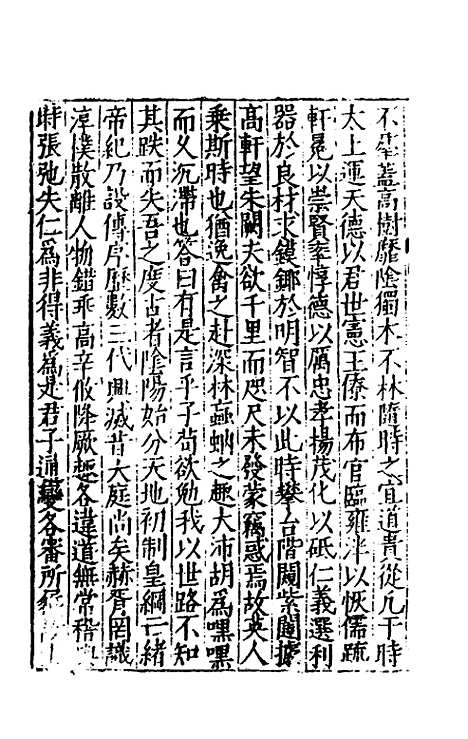 不羣蓋高樹靡陰獨木不林隨時之宜道貴從凡于時
太上運天德以君世憲王僚而布官臨雍泮以恢儒疏
軒冕以崇賢率惇德以厲忠孝楊茂化以砥仁義選利
器於良材求鏌鎁於明智不以此時攀台階闚紫闥據
高軒望朱闕夫欲千里而咫尺未發蒙竊惑焉故英人
乘斯時也猶逸禽之赴深林蝱蚋之趣大沛胡爲嘿嘿
而久沉滯也答曰有是言乎子苟欲勉我以世路不知
其跌而失吾之度古者陰陽始分天地初制皇綱云緒
帝紀乃設傳序歷數三代興滅昔大庭尚矣赫胥罔識
淳樸散離人物錯乖高辛攸降厥趣各違道無常稽
時張弛失仁爲非得義爲是君子通變各審所